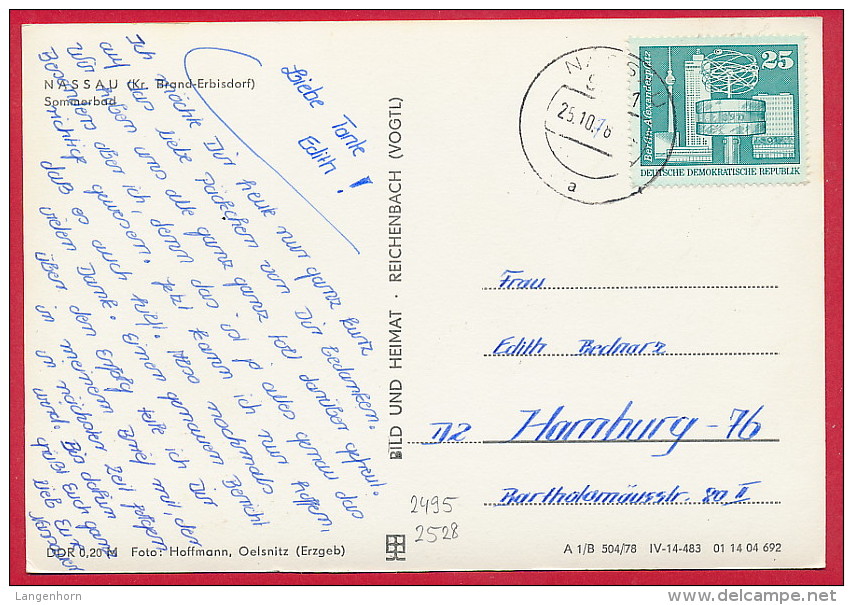 NASSAU (Kr. Brand-Erbisdorf)
Sommerbad
Liebe Tante
Edith!
Ich möchte Dir heute nur ganz kurz
auf das liebe Päckchen von Dir bedanken.
Wir haben uns alle ganz ganz toll darüber gefreut.
Besonders aber ich, denn das ist ja alles genau das
richtig gewesen. Jetzt kann ich nur hoffen,
daß es auch hilft. Also nochmals
vielen Dank. Einen genauen Bericht
über den Erfolg teile ich Dir
in meinem Brief mit, der
in nächster Zeit folgen
wird. Bis dahin
grüßt Euch ganz
lieb Eure
DDR 0,20 M Foto: Hoffmann, Oelsnitz (Erzgeb)
BILD UND HEIMAT · REICHENBACH (VOGTL)
25.10.78
a
25
Berlin-Alexanderplatz
DEUTSCHE DEMOKRATISCHE REPUBLIK
Frau
Edith Bednarz
Hamburg - 76
Bartholomäusstr. 20 II
2495
2528
A 1/B 504/78 IV-14-483 01 14 04 692
Langenhorn
www.delcampe.net